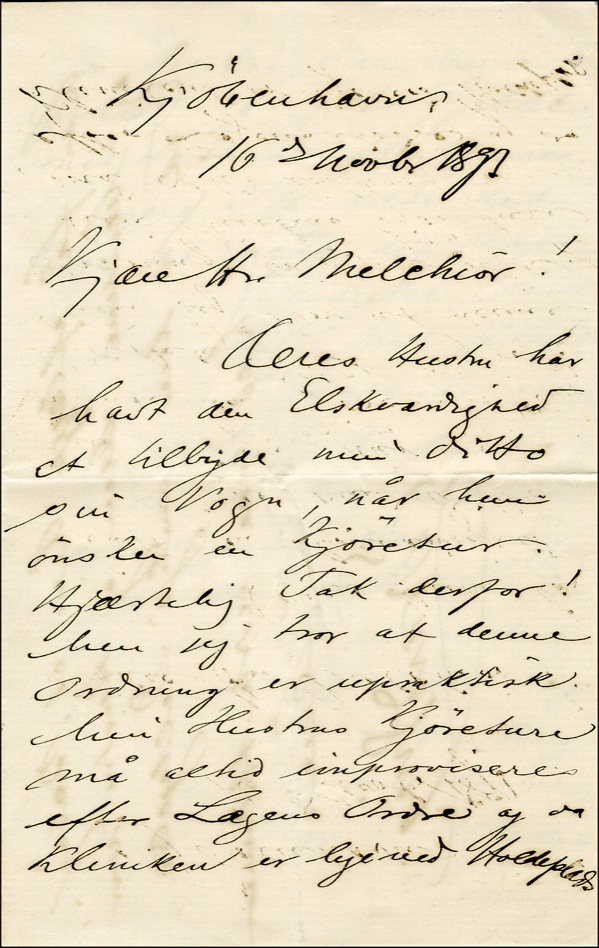 Kjöbenhavn,
16 Novbr 1891
Kjære Hr. Melchior!
Deres Hustru har
havt den Elskværdighed
at tilbyde min ditto
sin Vogn, når hun
önsker en Kjöretur.
Hjærtelig Tak derfor!
Men jeg tror at denne
Ordning er upraktisk.
Min Hustrus Kjöreture
må altid improviseres
efter Lægens Ordre og da
Kliniken er lige ved Holdeplads